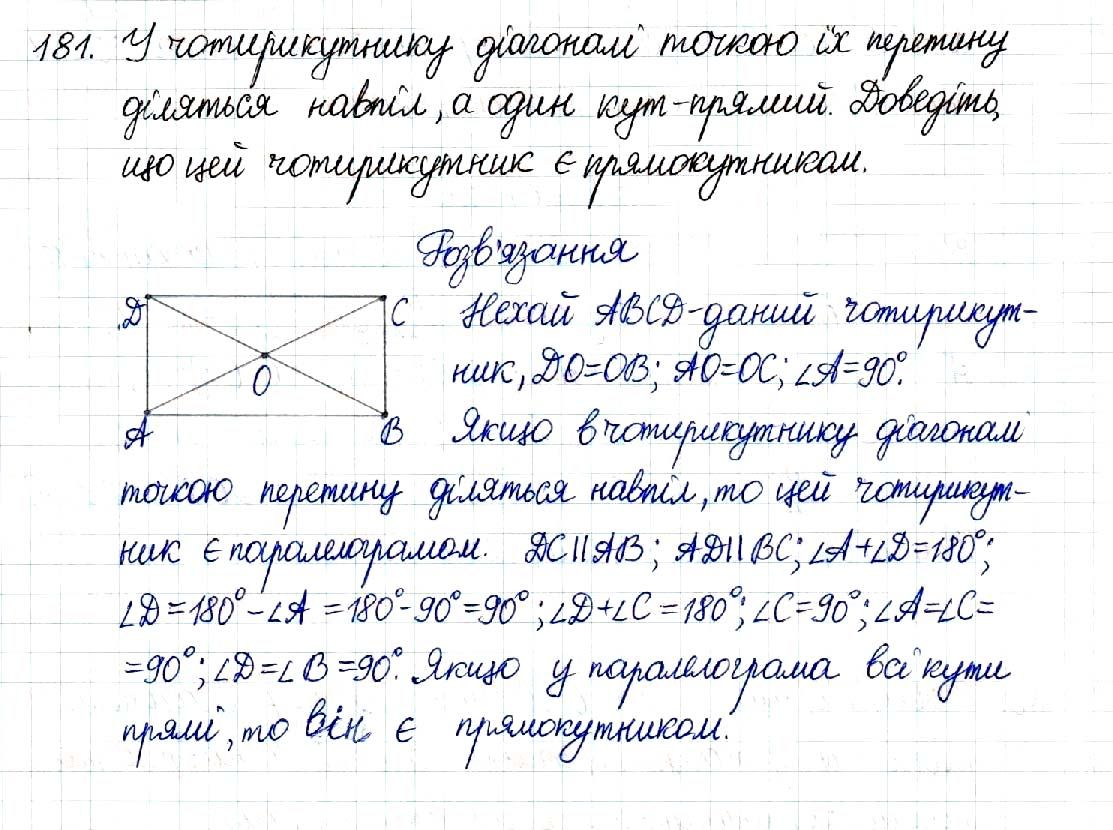 181. У чотирикутнику діагоналі точкою їх перетину
діляться навпіл, а один кут-прямий. Доведіть,
що цей чотирикутник є прямокутником.
Розв'язання
D
C
O
A
B
Нехай ABCD-даний чотирикут-
ник, DO=OB; AO=OC; ∠A=90°.
Якщо в чотирикутнику діагоналі
точкою перетину діляться навпіл, то цей чотирикут-
ник є паралелограмом. DC||AB; AD||BC; ∠A+∠D=180°;
∠D=180°-∠A=180°-90°=90°; ∠D+∠C=180°; ∠C=90°; ∠A=∠C=
=90°; ∠D=∠B=90°. Якщо у паралелограма всі кути
прямі, то він є прямокутником.